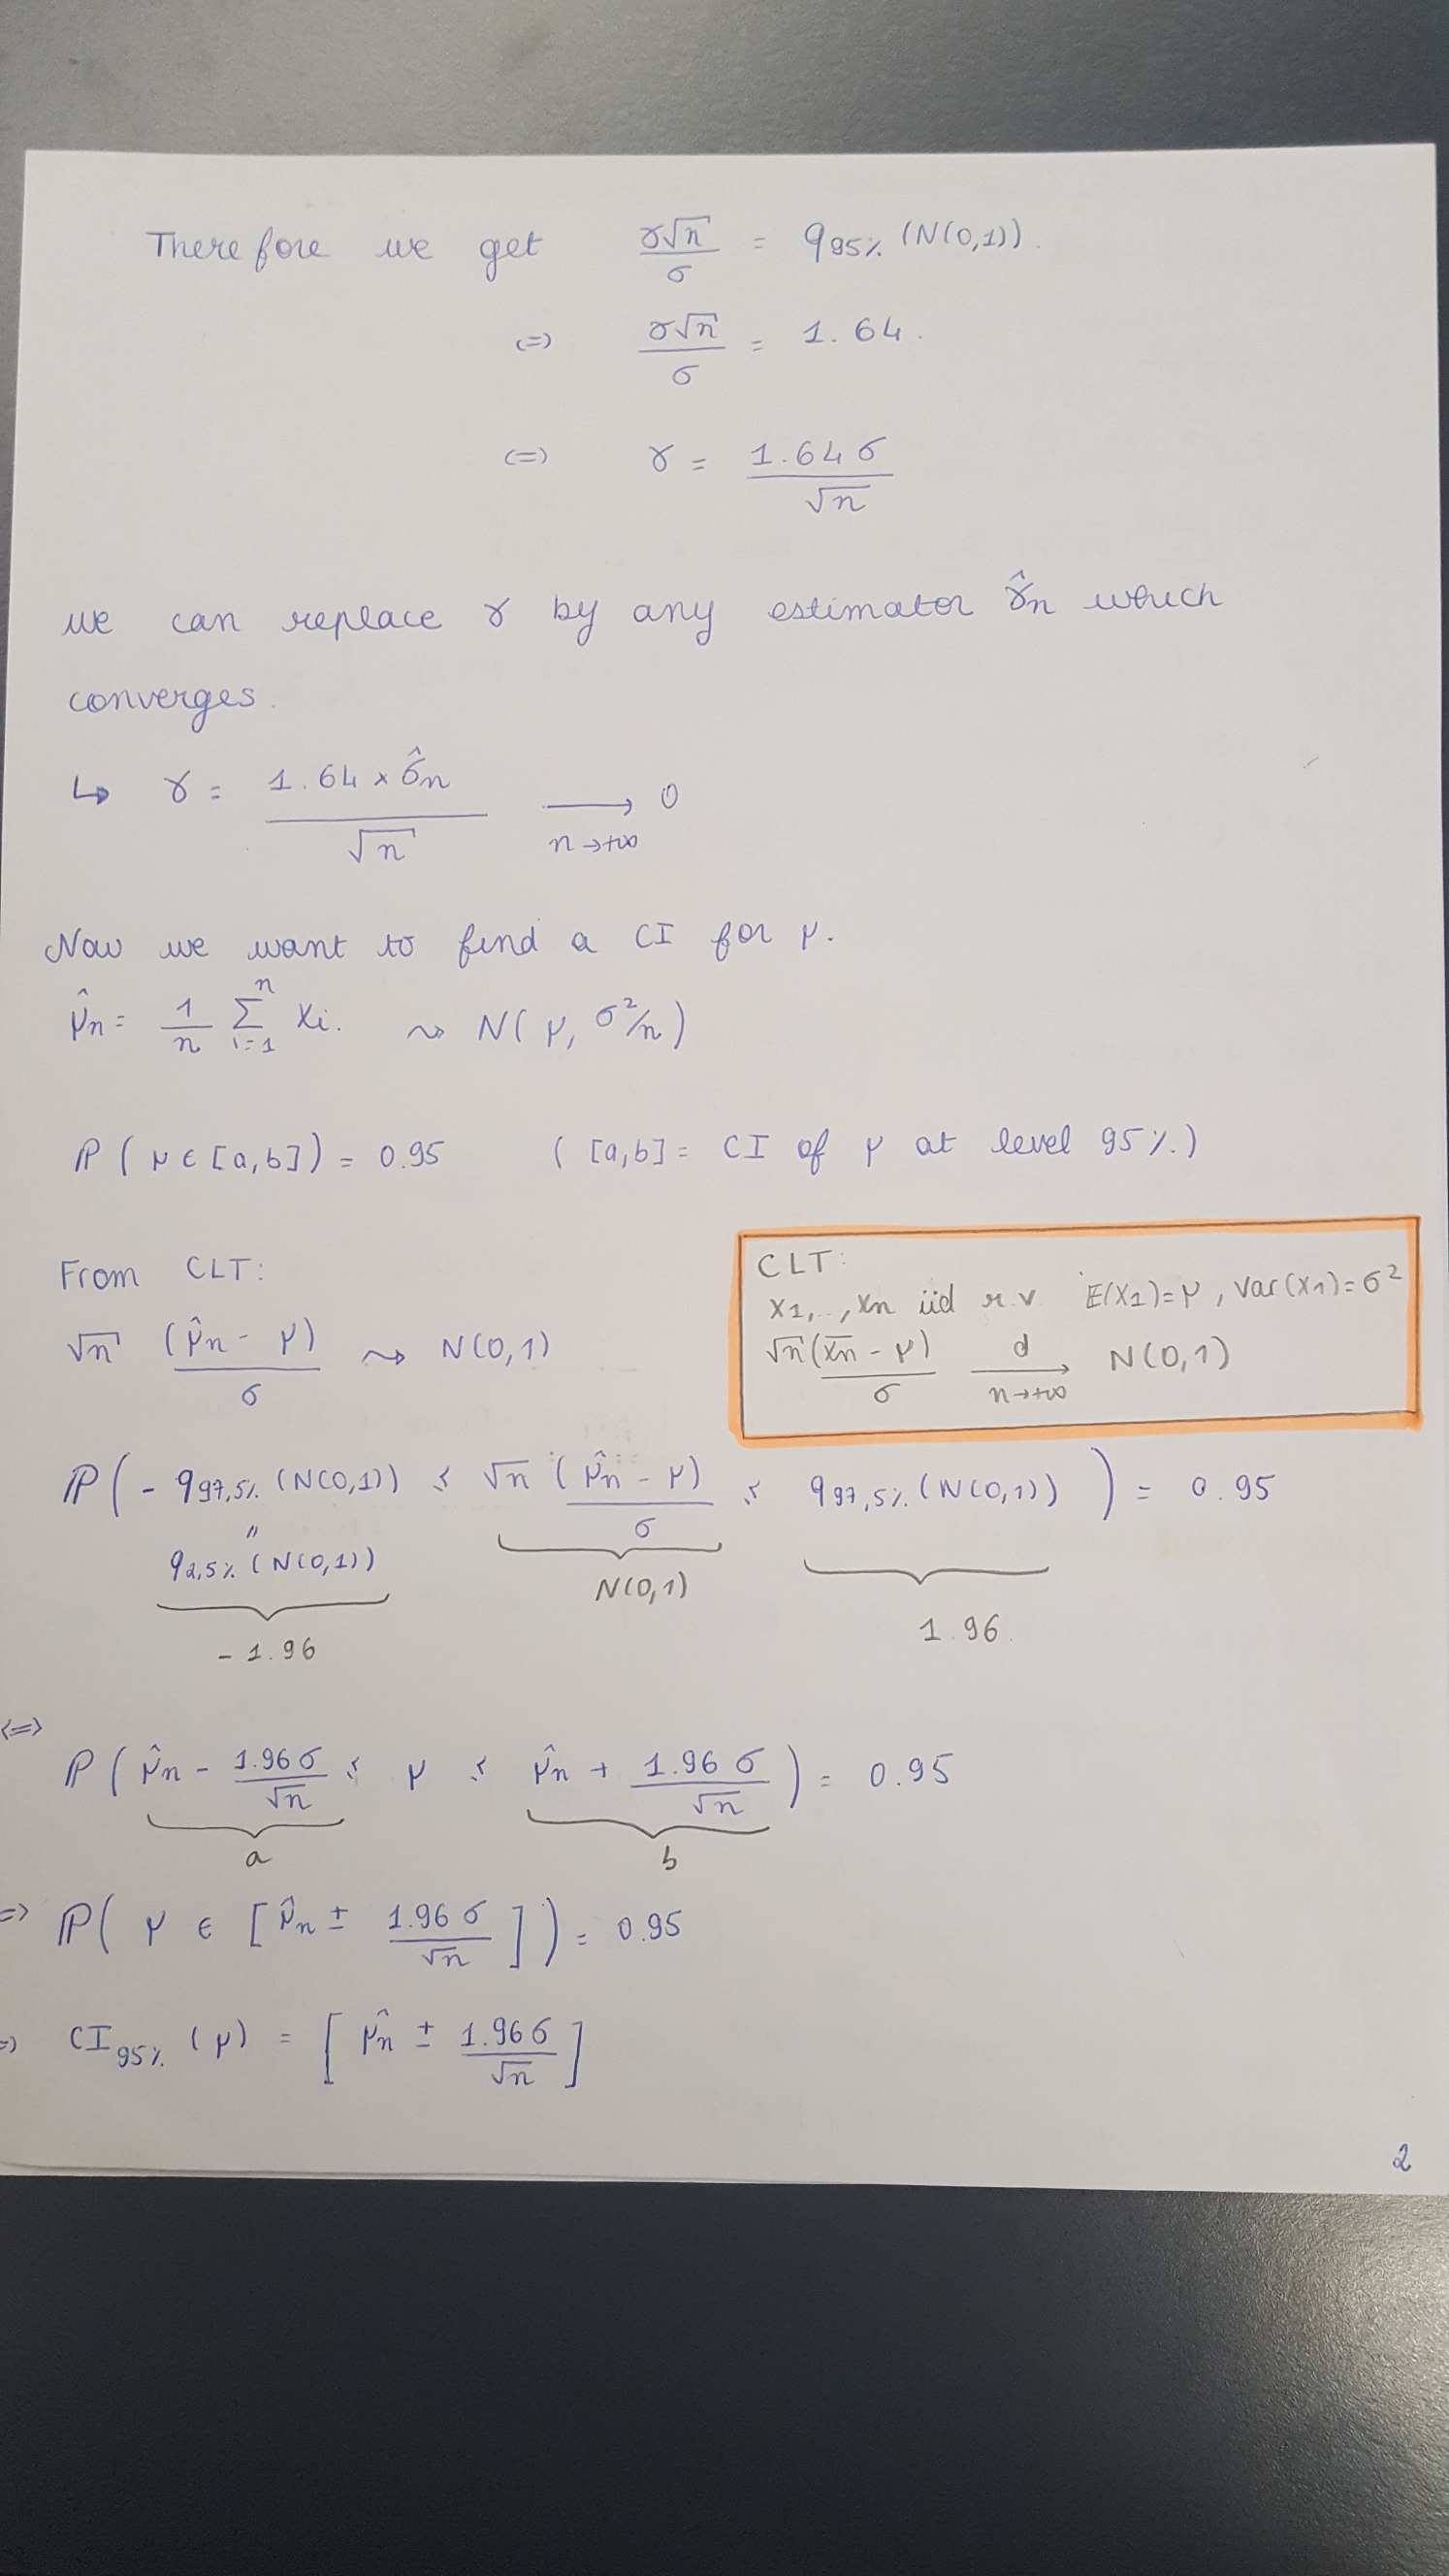 Therefore we get γ√n / σ = q95% (N(0,1)).
(=) γ√n / σ = 1.64.
(=) γ = 1.64 σ / √n
we can replace γ by any estimator γ̂n which
converges.
↳ γ = 1.64 × σ̂n / √n ⟶ 0 n→+∞
Now we want to find a CI for μ.
μ̂n = 1/n Σ i=1 n Xi. ⤳ N(μ, σ²/n)
ℙ(μ ∈ [a,b]) = 0.95 ([a,b] = CI of μ at level 95%.)
From CLT:
√n (μ̂n - μ) / σ ⤳ N(0,1)
CLT:
X1,..,Xn iid r.v E(X1)=μ, Var(X1)=σ²
√n(X̄n - μ) / σ ⟶ d n→+∞ N(0,1)
ℙ(- q97,5% (N(0,1)) ≤ √n (μ̂n - μ) / σ ≤ q97,5% (N(0,1))) = 0.95
"
q2,5% (N(0,1))
N(0,1)
- 1.96
1.96.
<=>
ℙ(μ̂n - 1.96 σ / √n ≤ μ ≤ μ̂n + 1.96 σ / √n) = 0.95
a b
=> ℙ(μ ∈ [μ̂n ± 1.96 σ / √n]) = 0.95
=) CI95% (μ) = [μ̂n ± 1.96 σ / √n]
2